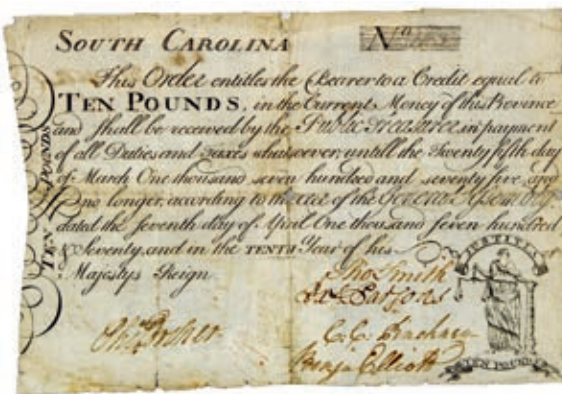 SOUTH CAROLINA No
This Order entitles the Bearer to a Credit equal to
TEN POUNDS, in the Current Money of this Province
and Shall be received by the Public Treasurer in payment
of all Duties and Taxes whatsoever, untill the Twenty fifth day
of March One thousand seven hundred and seventy five, and
no longer, according to the Act of the General Assembly
dated the seventh day of April One thousand seven hundred
& Seventy, and in the TENTH Year of his
Majestys Reign.
TEN POUNDS
Tho Smith
Ja Parsons
C. C. Pinckney
Benja Elliott
JUSTITIA
TEN POUNDS